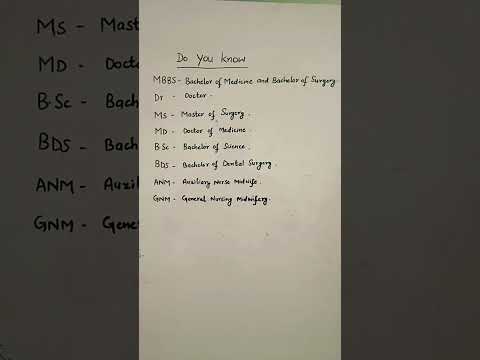 Do You know
MBBS - Bachelor of Medicine and Bachelor of Surgery.
Dr - Doctor.
MS - Master of Surgery.
MD - Doctor of Medicine.
B.Sc - Bachelor of Science.
BDS - Bachelor of Dental Surgery.
ANM - Auxiliary Nurse Midwife.
GNM - General Nursing Midwifery.
MS - Mast
MD - Docto
B.Sc - Bach
BDS - Bach
ANM - Auxil
GNM - Gener